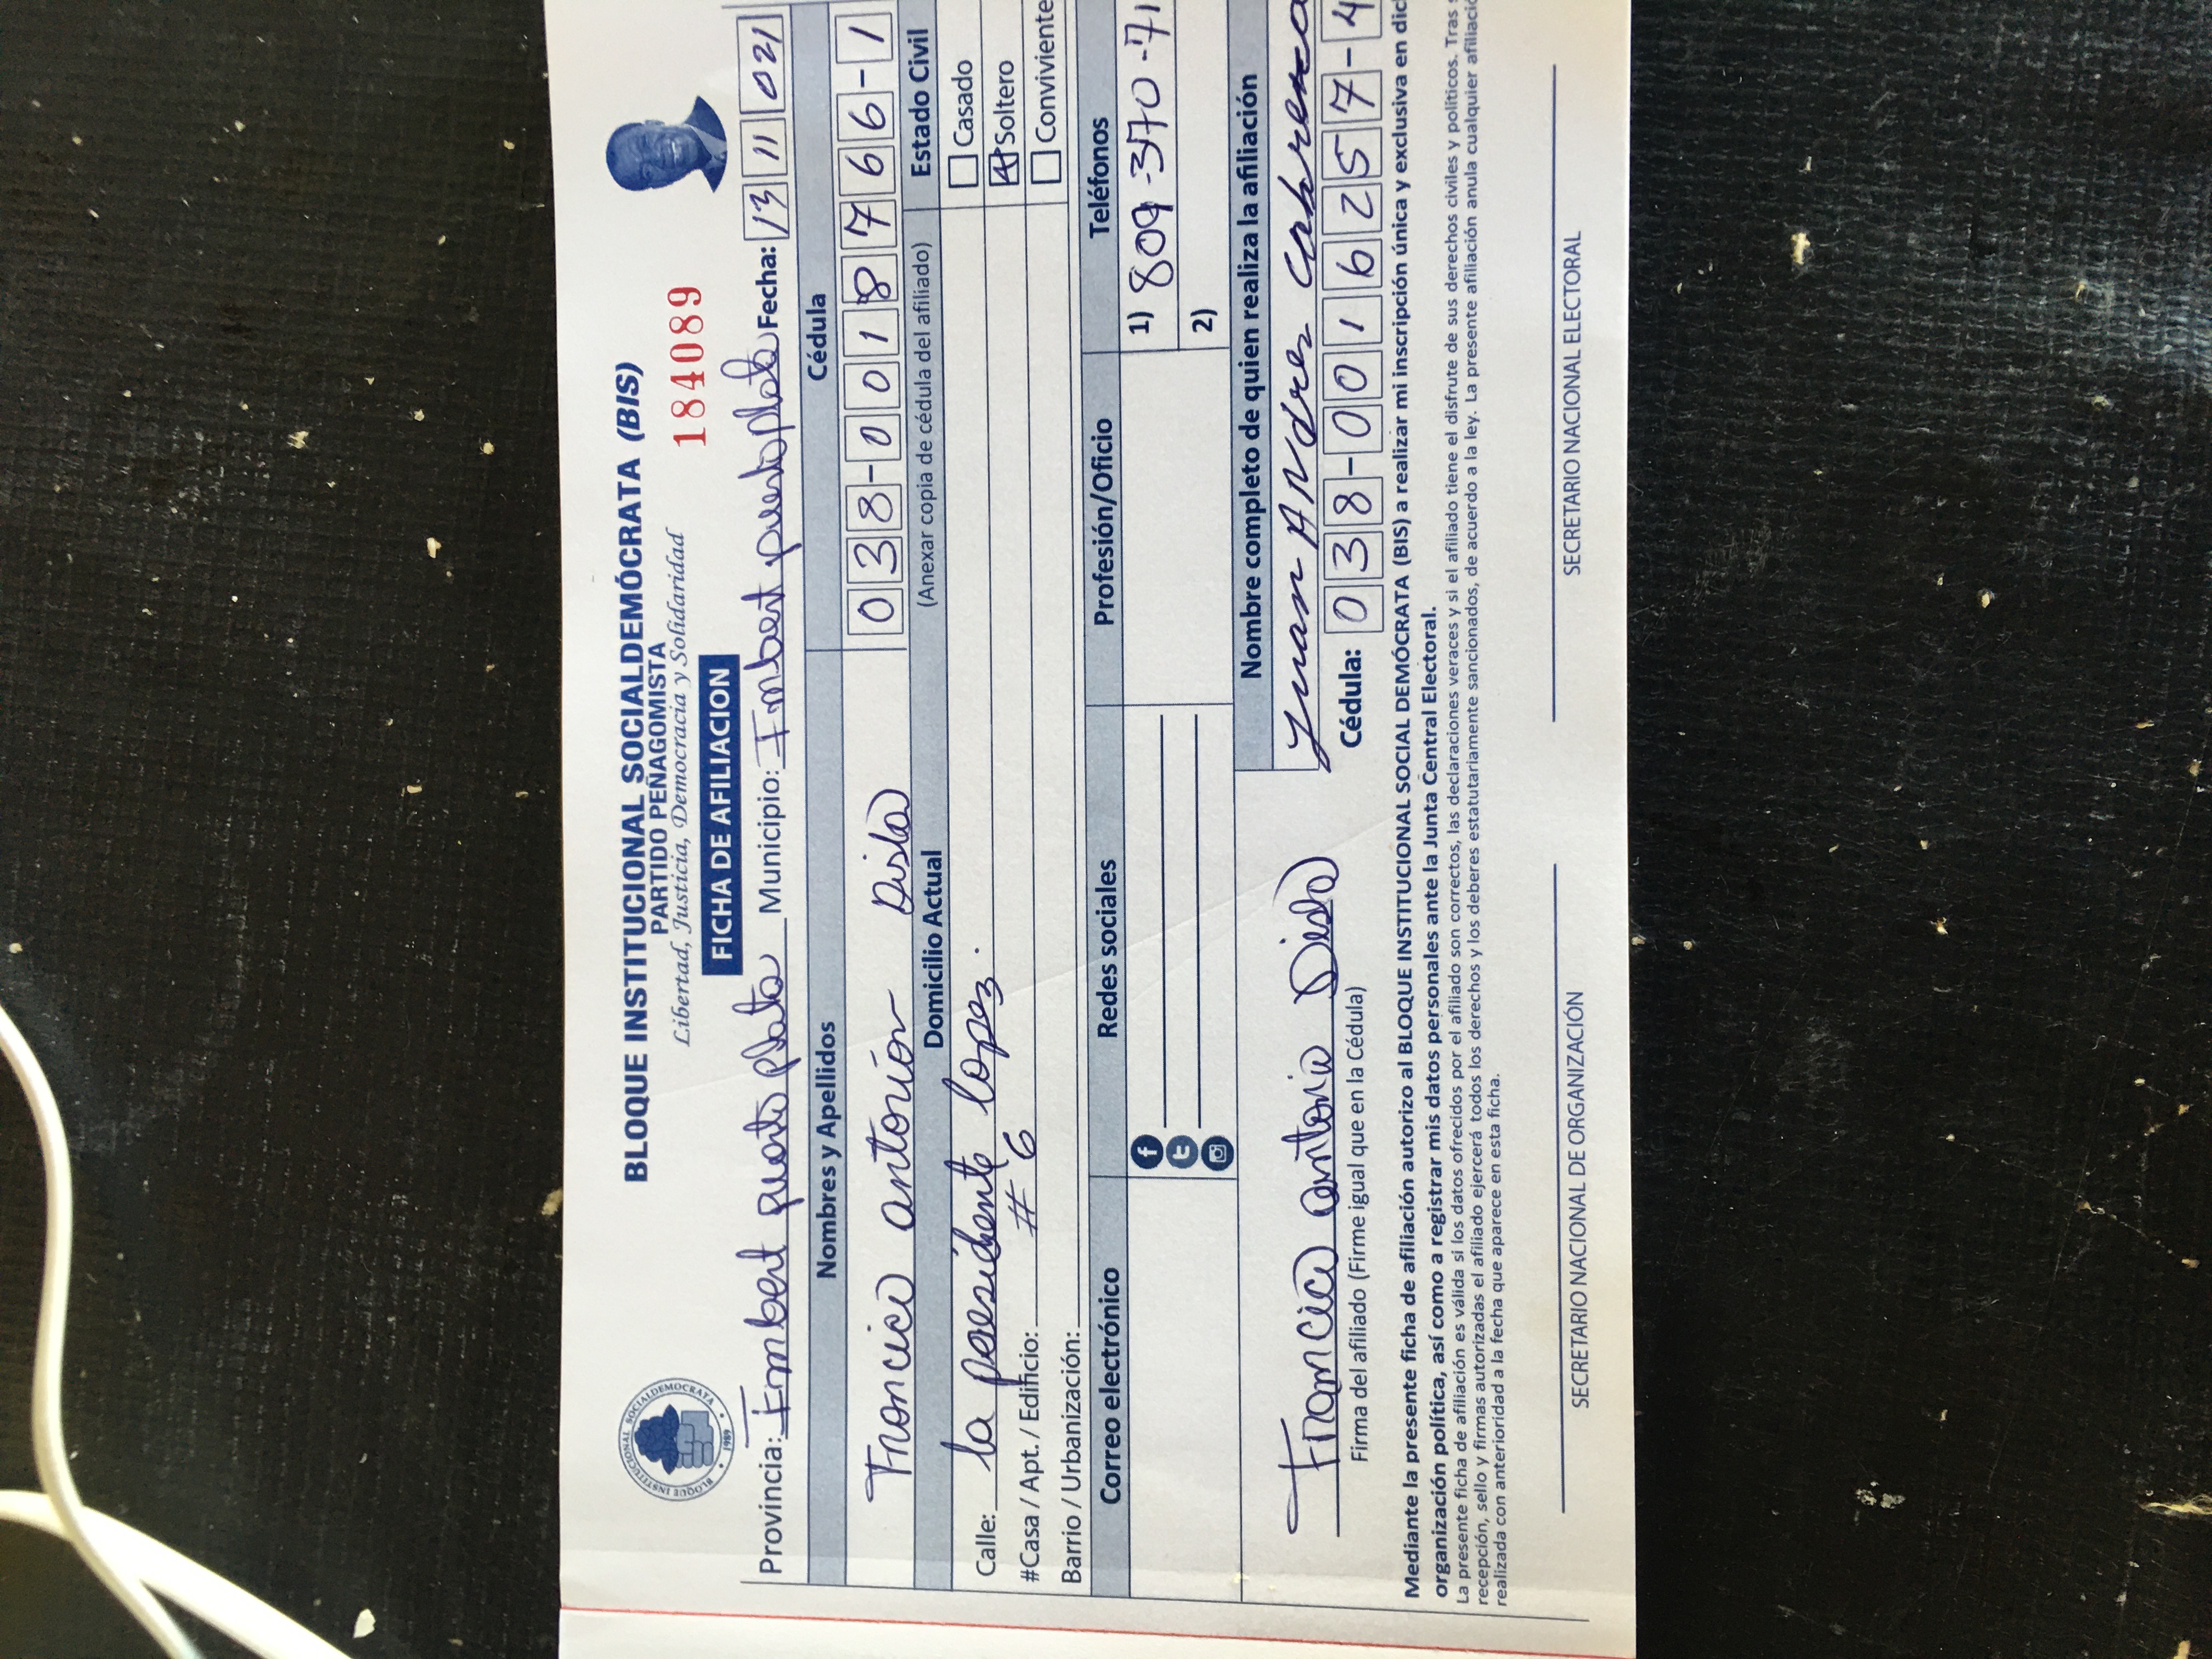 BLOQUE INSTITUCIONAL SOCIALDEMÓCRATA (BIS)
PARTIDO PEÑAGOMISTA
Libertad, Justicia, Democracia y Solidaridad
184089
FICHA DE AFILIACION
BLOQUE INSTITUCIONAL SOCIALDEMOCRATA
1989
Provincia: Imbert puerto plata Municipio: Imbert puerto plata Fecha: 13 11 021
Nombres y Apellidos Cédula
Francico antonio Disla 038-0018766-1
Domicilio Actual (Anexar copia de cédula del afiliado) Estado Civil
Calle: la presidente lopez. Casado
#Casa / Apt. / Edificio: # 6 Soltero
Barrio / Urbanización: Conviviente
Correo electrónico Redes sociales Profesión/Oficio Teléfonos
1) 809-370-71
2)
Nombre completo de quien realiza la afiliación
Francico antonio Disla Juan ANdres Cabrera
Firma del afiliado (Firme igual que en la Cédula) Cédula: 038-0016257-4
Mediante la presente ficha de afiliación autorizo al BLOQUE INSTITUCIONAL SOCIAL DEMÓCRATA (BIS) a realizar mi inscripción única y exclusiva en dic
organización política, así como a registrar mis datos personales ante la Junta Central Electoral.
La presente ficha de afiliación es válida si los datos ofrecidos por el afiliado son correctos, las declaraciones veraces y si el afiliado tiene el disfrute de sus derechos civiles y políticos. Tras s
recepción, sello y firmas autorizadas el afiliado ejercerá todos los derechos y los deberes estatutariamente sancionados, de acuerdo a la ley. La presente afiliación anula cualquier afiliació
realizada con anterioridad a la fecha que aparece en esta ficha.
SECRETARIO NACIONAL DE ORGANIZACIÓN SECRETARIO NACIONAL ELECTORAL